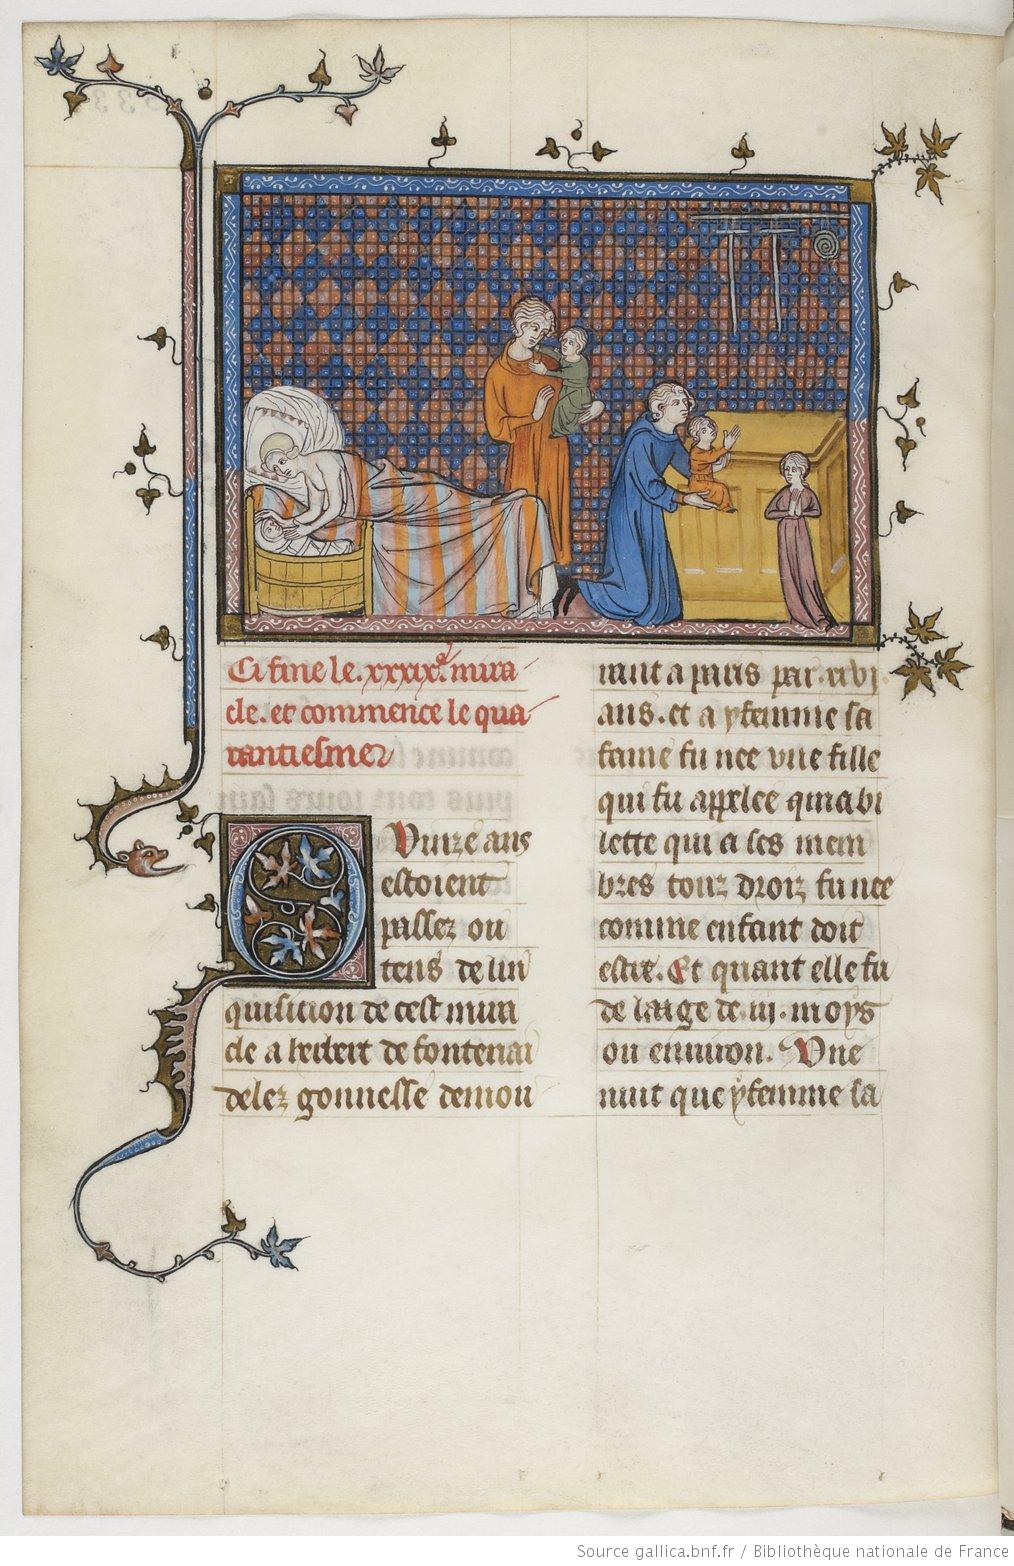 Ci fine le .xxxix.e mira
cle. et commence le qua
rantiesme
Quinze ans
estoient
passez ou
tens de lin
quisicion de cest mira
cle a herbert de fontenai
delez gonnesse demou
rant a paris par .xvj.
ans. et a ysemme sa
fame fu nee une fille
qui fu appelee quiabi
lette qui a ses mem
bres touz droiz fu nee
comme enfant doit
estre. Et quant elle fu
de laage de .iij. moys
ou environ. Une
nuit que ysemme sa
Source gallica.bnf.fr / Bibliothèque nationale de France